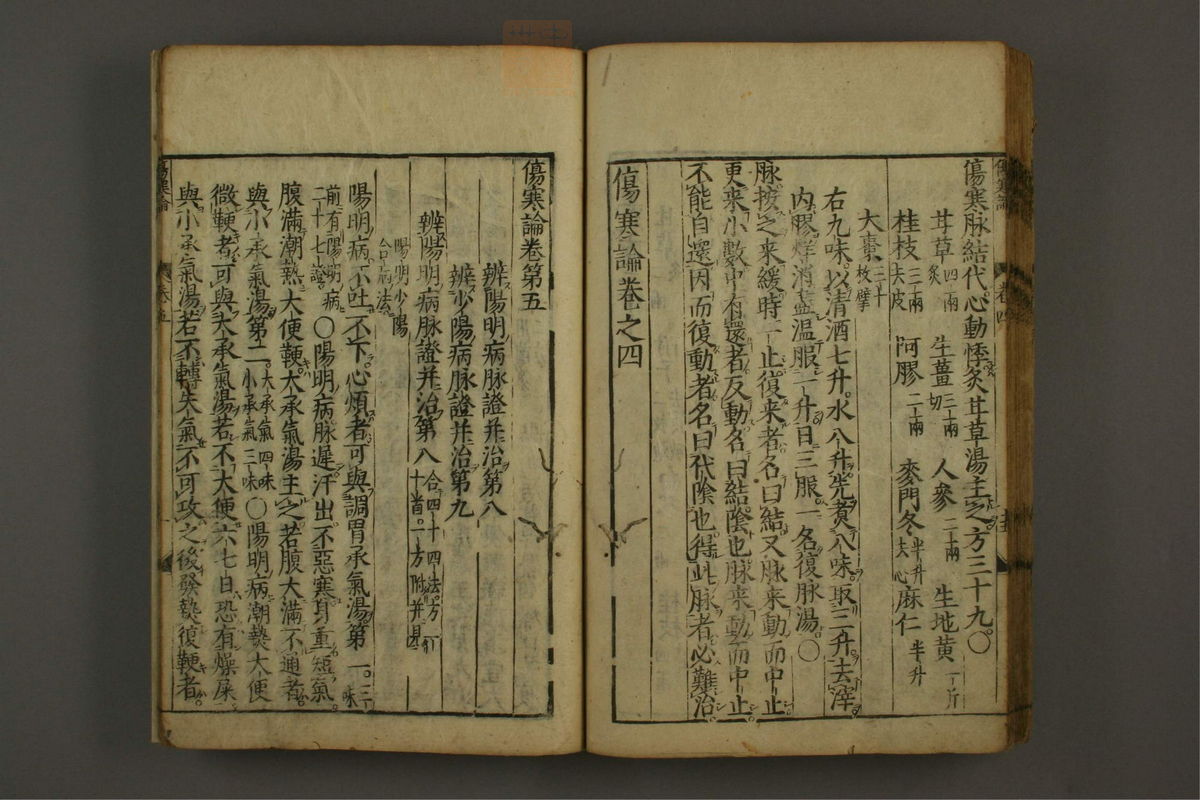 傷寒脉結代心動悸炙甘草湯主之方三十九○
甘草四兩炙 生薑三兩切 人參二兩 生地黄一斤
桂枝三兩去皮 阿膠二兩 麥門冬半升去心 麻仁半升
大棗三十枚擘
右九味以清酒七升水八升先煮八味取三升去滓
内膠烊消盡温服一升日三服一名復脉湯○
脉按之来緩時一止復来者名曰結又脉来動而中止
更来小數中有還者反動名曰結陰也脉来動而中止
不能自還因而復動者名曰代陰也得此脉者必難治
傷寒論卷之四
傷寒論卷第五
辨陽明病脉證并治第八
辨少陽病脉證并治第九
辨陽明病脉證并治第八 合四十四法方一十首一方附并見
陽明少陽合病法
陽明病不吐不下心煩者可與調胃承氣湯第一三味
前有陽明病二十七證○陽明病脉遲汗出不惡寒身重短氣
腹滿潮熱大便鞕大承氣湯主之若腹大滿不通者
與小承氣湯第二大承氣四味小承氣三味○陽明病潮熱大便
微鞕者可與大承氣湯若不大便六七日恐有燥屎
與小承氣湯若不轉失氣不可攻之後發熱復鞕者
傷寒論
卷四
傷寒論
卷五